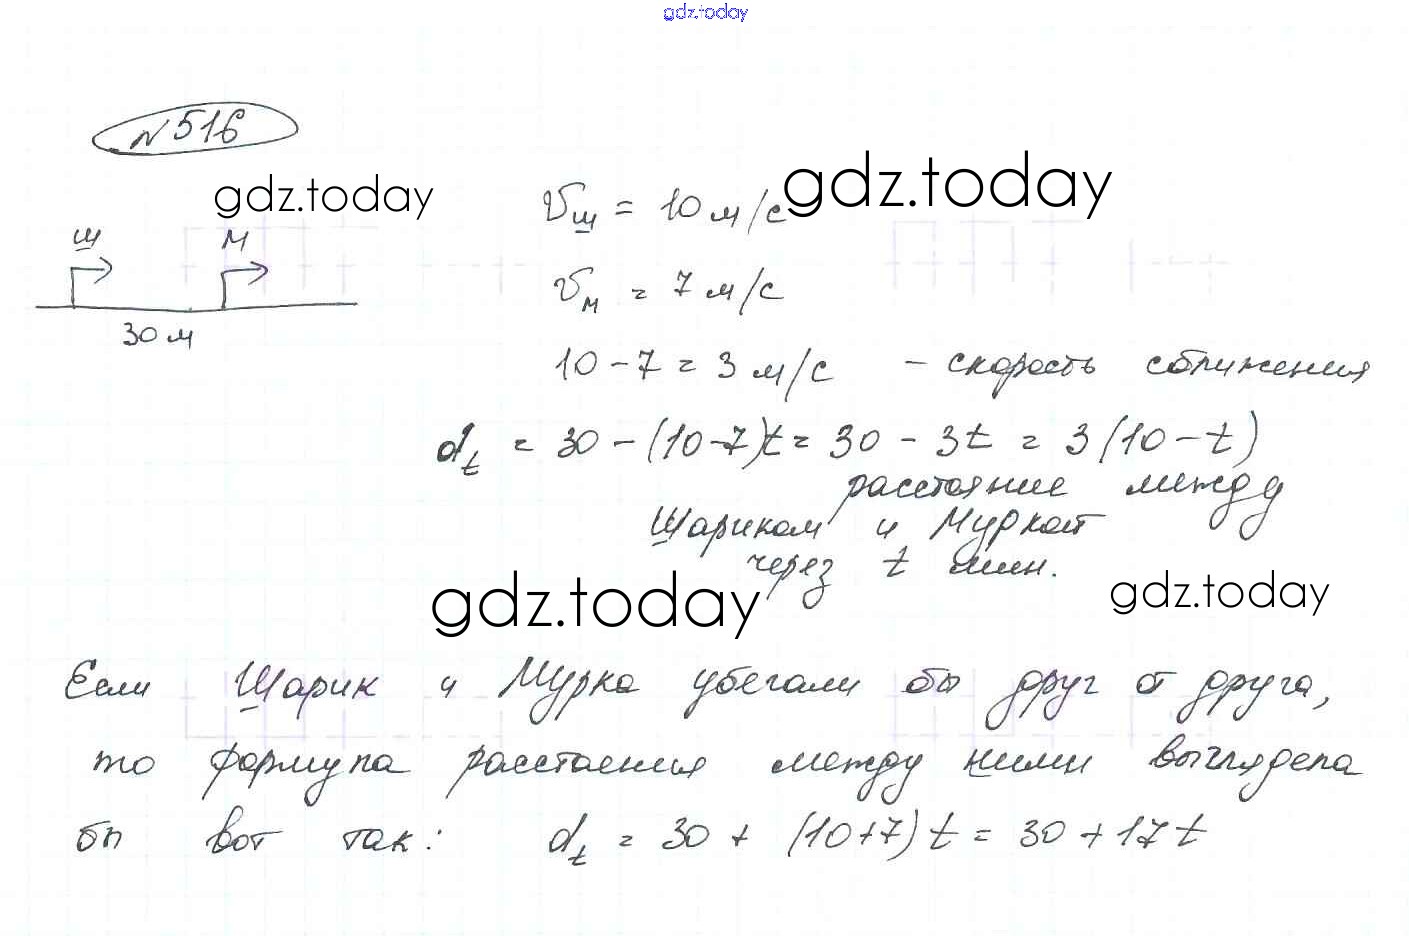 gdz.today
№516
gdz.today
gdz.today
Vш = 10 м/с
Ш М
Vм = 7 м/с
30 м
10 - 7 = 3 м/с - скорость сближения
dt = 30 - (10-7)t = 30 - 3t = 3(10 - t)
расстояние между
Шариком и Муркой
через t мин.
gdz.today
gdz.today
Если Шарик и Мурка убегали бы друг от друга,
то формула расстояния между ними выглядела
бы вот так: dt = 30 + (10+7)t = 30 + 17t